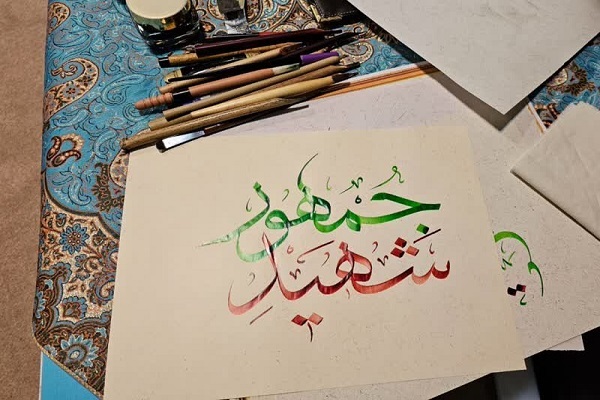 جمهور
شهیدِ